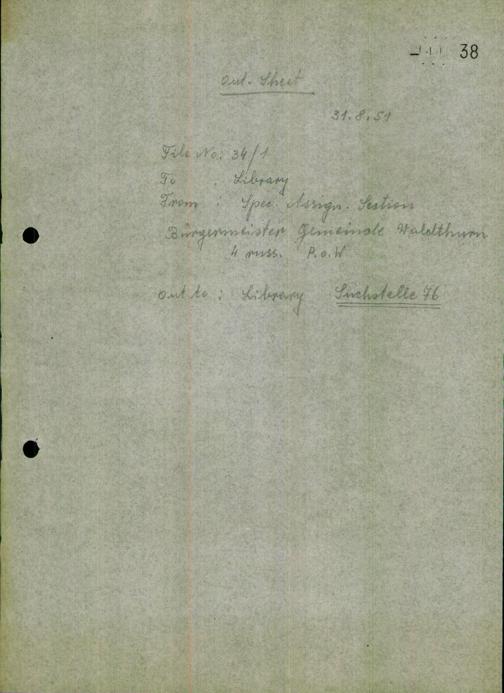 38
Out-Sheet
31.8.51
File No: 34/1
To : Library
From : Spec. Assign. Section
Bürgermeister Gemeinde Waldthurn
4 russ. P.o.W
out to : Library Suchstelle 76